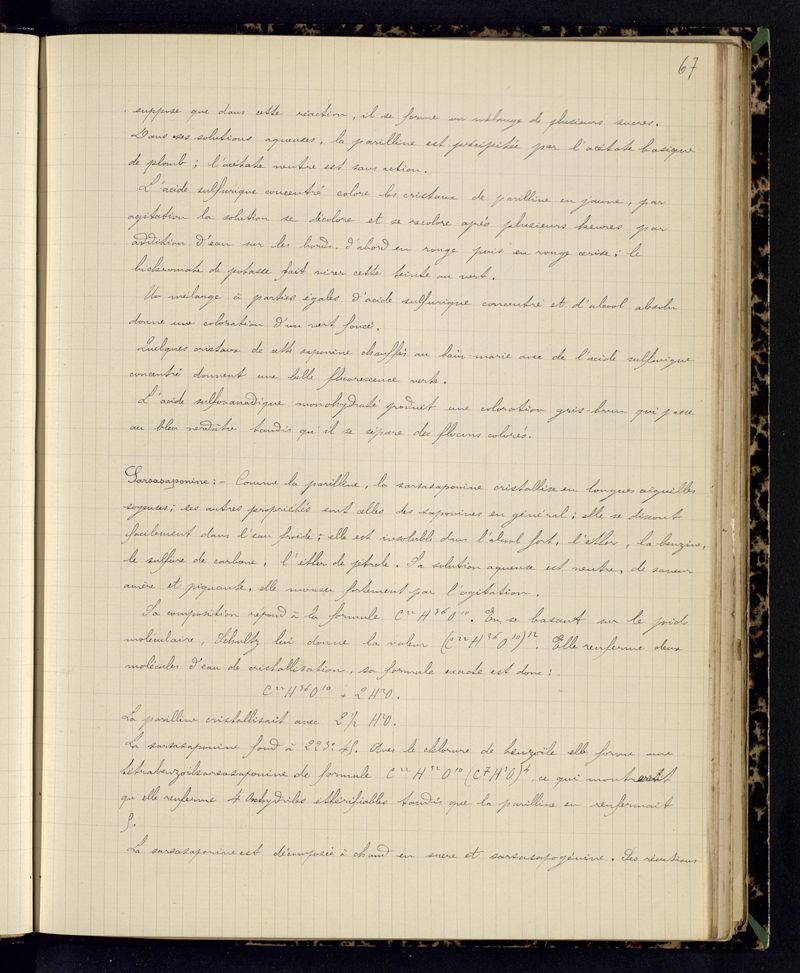 67
suppose que dans cette réaction, il se forme un mélange de plusieurs sucres.
Dans ses solutions aqueuses, la parilline est précipitée par l'acétate basique
de plomb ; l'acétate neutre est sans action.
L'acide sulfurique concentré colore les cristaux de parilline en jaune, par
agitation la solution se décolore et se recolore après plusieurs heures par
addition d'eau sur les bords. d'abord en rouge puis en rouge cerise ; le
bichromate de potasse fait virer cette teinte au vert.
Un mélange à parties égales d'acide sulfurique concentré et d'alcool absolu
donne une coloration d'un vert foncé.
Quelques cristaux de cette saponine chauffés au bain-marie avec de l'acide sulfurique
concentré donnent une belle fluorescence verte.
L'acide sulfovanadique monohydraté produit une coloration gris-brun qui passe
au bleu verdâtre tandis qu'il se sépare des flocons colorés.
Sarsasaponine : - Comme la parilline, la sarsasaponine cristallise en longues aiguilles
soyeuses ; ses autres propriétés sont celles des saponines en général ; elle se dissout
facilement dans l'eau froide ; elle est insoluble dans l'alcool fort, l'éther, la benzine,
le sulfure de carbone, l'éther de pétrole. Sa solution aqueuse est neutre, de saveur
amère et piquante, elle mousse fortement par l'agitation.
Sa composition répond à la formule C²²H³⁶O¹⁰. En se basant sur le poids
moléculaire, Schultz lui donne la valeur (C²²H³⁶O¹⁰)¹². Elle renferme deux
molécules d'eau de cristallisation, sa formule exacte est donc :
C²²H³⁶O¹⁰ + 2H²O.
La parilline cristallisait avec 2 1/2 H²O.
La sarsasaponine fond à 223°. Avec le chlorure de benzoïle elle forme une
tétrabenzoilsarsasaponine de formule C²²H³²O¹⁰(C⁷H⁵O)⁴, ce qui montrerait
qu'elle renferme 4 oxhydriles éthérifiables tandis que la parilline en renfermait
5.
La sarsasaponine est décomposée à chaud en sucre et sarsasapogénine. Les réactions